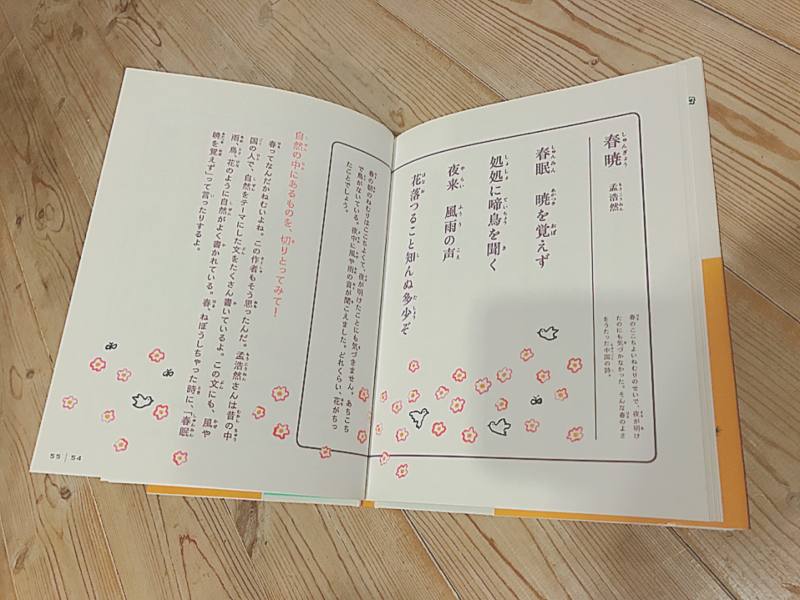 春暁
孟浩然
春のここちよいねむりのせいで、夜が明け
たのにも気づかなかった。そんな春のよさ
をうたった中国の詩。
春眠　暁を覚えず
処処に啼鳥を聞く
夜来　風雨の声
花落つること知んぬ多少ぞ
春の朝のねむりはここちよくて、夜が明けたことにも気づきません。あちこち
で鳥がないている。夜中に風や雨の音が聞こえました。どれくらい、花がちっ
たことでしょう。
自然の中にあるものを、切りとってみて！
春ってなんだかねむいよね。この作者もそう思ったんだ。孟浩然さんは昔の中
国の人で、自然をテーマにした文をたくさん書いているよ。この文にも、風や
雨、鳥、花のように自然がよく書かれている。春、ねぼうしちゃった時に、「春眠
暁を覚えず」って言ったりするよ。
55 | 54